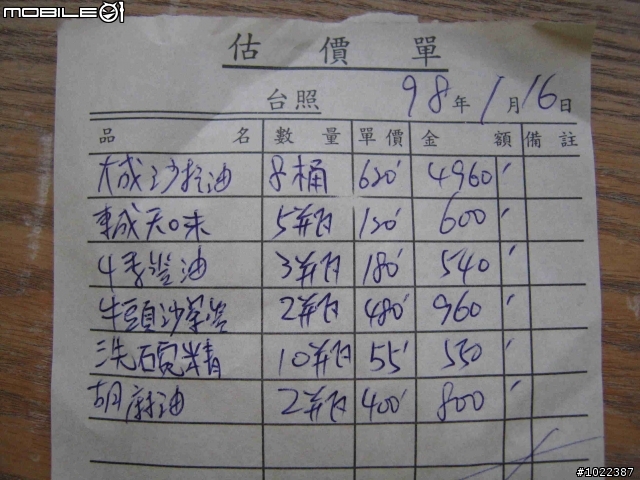 MOBILE01
估價單
台照 98年1月16日
品名 數量 單價 金額 備註
大成沙拉油 8桶 620 4960
天味 5瓶 120 600
油 3瓶 180 540
牛頭沙茶醬 2瓶 480 960
洗碗精 10瓶 55 550
胡麻油 2瓶 400 800
#1022387